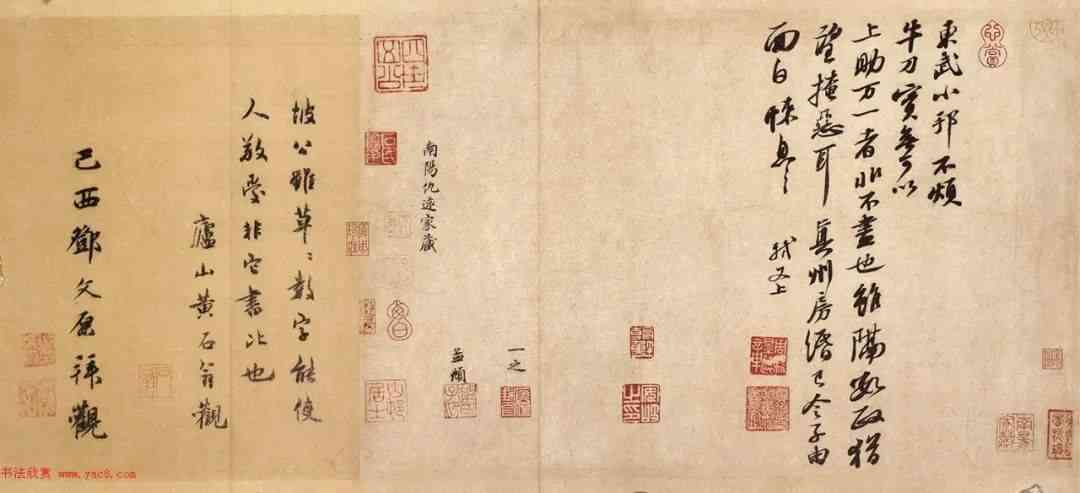 東武小邦不煩
牛刀實無可以
上助万一者非不盡也雖隔數政猶
望掩惡耳 真州房緡已令子由
面白悚息〻 軾又上
南陽仇遠家藏
一之
坡公雖草〻數字能使
人敬愛非它書比也
廬山黃石翁觀
己酉鄧文原拜觀
书法欣赏 www.yac8.com